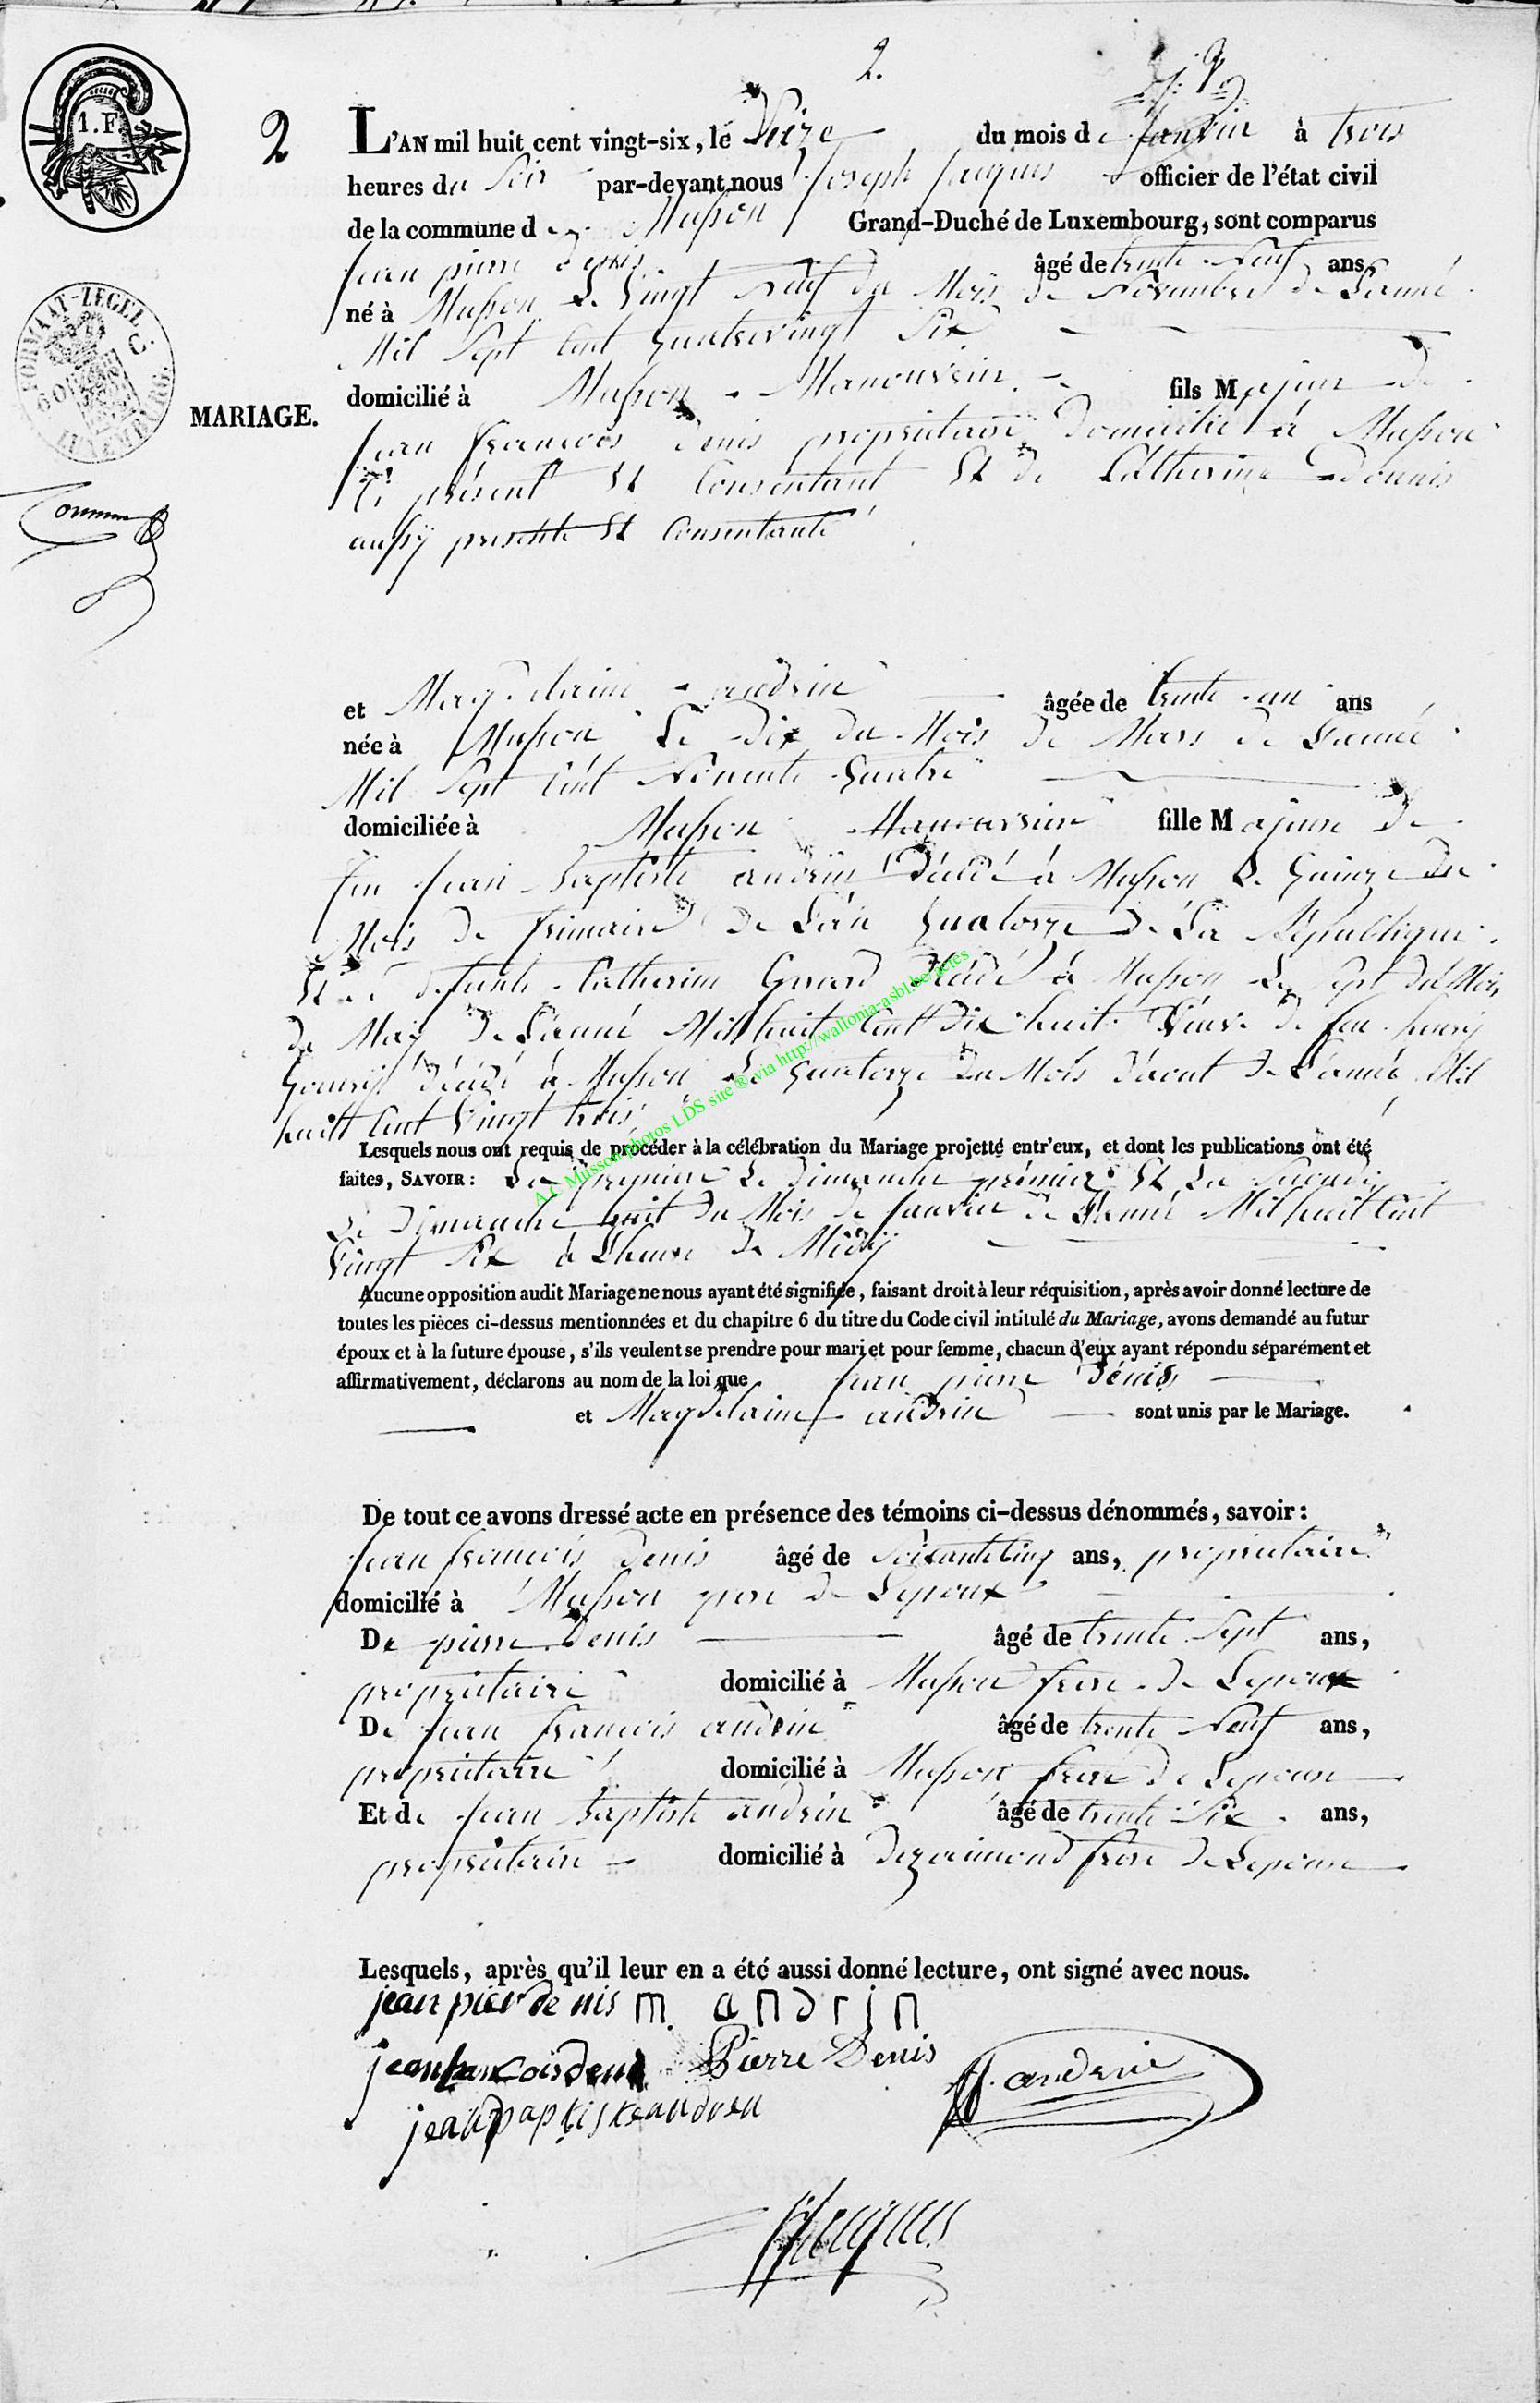 2.
1. F.
2
L'AN mil huit cent vingt-six, le Seize du mois de Janvier à trois
heures du Soir par-devant nous Joseph Jacques officier de l'état civil
de la commune de Musson Grand-Duché de Luxembourg, sont comparus
Jean pierre denis âgé de trente Neuf ans
né à Musson Le Vingt Neuf du Mois de Novembre de L'année
Mil Sept Cent quatrevingt Six
FORMAAT-ZEGEL
MARIAGE.
domicilié à Musson Manouvrier fils Majeur de
Jean francois denis propriétaire domicilié à Musson
Ci présent Et Consentant Et de Catherine
aussÿ presente Et Consentante
et Magdelaine andrin âgée de trente un ans
née à Musson Le dix du Mois de Mars de L'année
Mil Sept Cent Nonente quatre
domiciliée à Musson fille Majeure de
feu Jean Baptiste andrin décédé à Musson Le Quinze du
Mois de frimaire de L'an quatorze de La République
Et de defunte Catherine décédé à Musson Le Sept du Mois
de Maÿ de L'année Mil huit Cent dix huit. Veuve de feu henrÿ
décédé à Musson Le quatorze du Mois d'aout de L'année Mil
huitt Cent Vingt trois
Lesquels nous ont requis de procéder à la célébration du Mariage projetté entr'eux, et dont les publications ont été
faites, SAVOIR : La premiere Le dimanche prémier Et La
Le Dimanche huit du Mois de Janvier de L'année Mil huit Cent
Vingt Six à L'heure de Midÿ
Aucune opposition audit Mariage ne nous ayant été signifiée, faisant droit à leur réquisition, après avoir donné lecture de
toutes les pièces ci-dessus mentionnées et du chapitre 6 du titre du Code civil intitulé du Mariage, avons demandé au futur
époux et à la future épouse, s'ils veulent se prendre pour mari et pour femme, chacun d'eux ayant répondu séparément et
affirmativement, déclarons au nom de la loi que Jean pierre dénis
et Magdelaine andrin sont unis par le Mariage.
De tout ce avons dressé acte en présence des témoins ci-dessus dénommés, savoir :
Jean francois denis âgé de Soixantecinq ans, propriétaire
domicilié à Musson pere de Lepoux
De pierre denis âgé de trente Sept ans,
propriétaire domicilié à Musson frere de Lepoux
De Jean francois andrin âgé de trente Neuf ans,
propriétaire domicilié à Musson frere de Lepouse
Et de Jean Baptiste andrin âgé de trente Six ans,
propriétaire domicilié à frere de Lepouse
Lesquels, après qu'il leur en a été aussi donné lecture, ont signé avec nous.
jean pier denis m. andrin
jean francois denis Pierre Denis
andrin
jean baptiste andrin
Jacques
A.C Musson photos LDS site ® via http://wallonia-asbl.be/actes